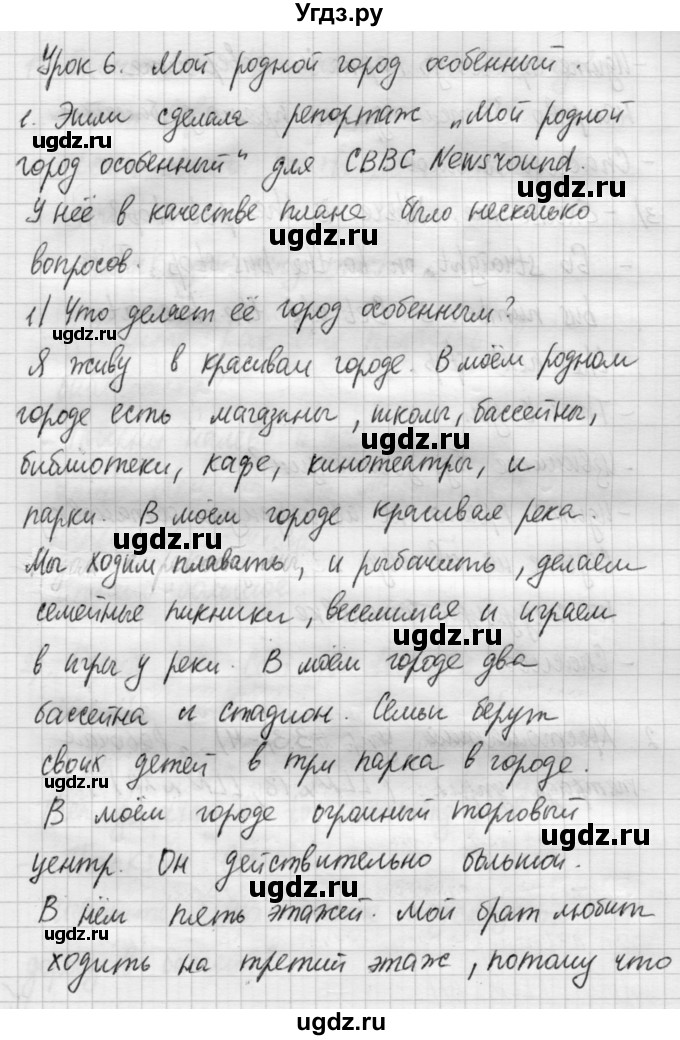 Угдз.ру
Урок 6. Мой родной город особенный
1. Эмили сделала репортаж „Мой родной
город особенный“ для CBBC Newsround.
У неё в качестве плана было несколько
вопросов.
1) Что делает её город особенным?
Я живу в красивом городе. В моём родном
городе есть магазины, школы, бассейны,
библиотеки, кафе, кинотеатры, и
парки. В моём городе красивая река.
Мы ходим плавать, и рыбачить, делаем
семейные пикники, веселимся и играем
в игры у реки. В моём городе два
бассейна и стадион. Семьи берут
своих детей в три парка в городе.
В моём городе огромный торговый
центр. Он действительно большой.
В нём пять этажей. Мой брат любит
ходить на третий этаж, потому что
ugdz.ru
ugdz.ru
ugdz.ru
ugdz.ru
ugdz.ru
ugdz.ru
ugdz.ru
ugdz.ru
ugdz.ru
ugdz.ru
ugdz.ru
ugdz.ru